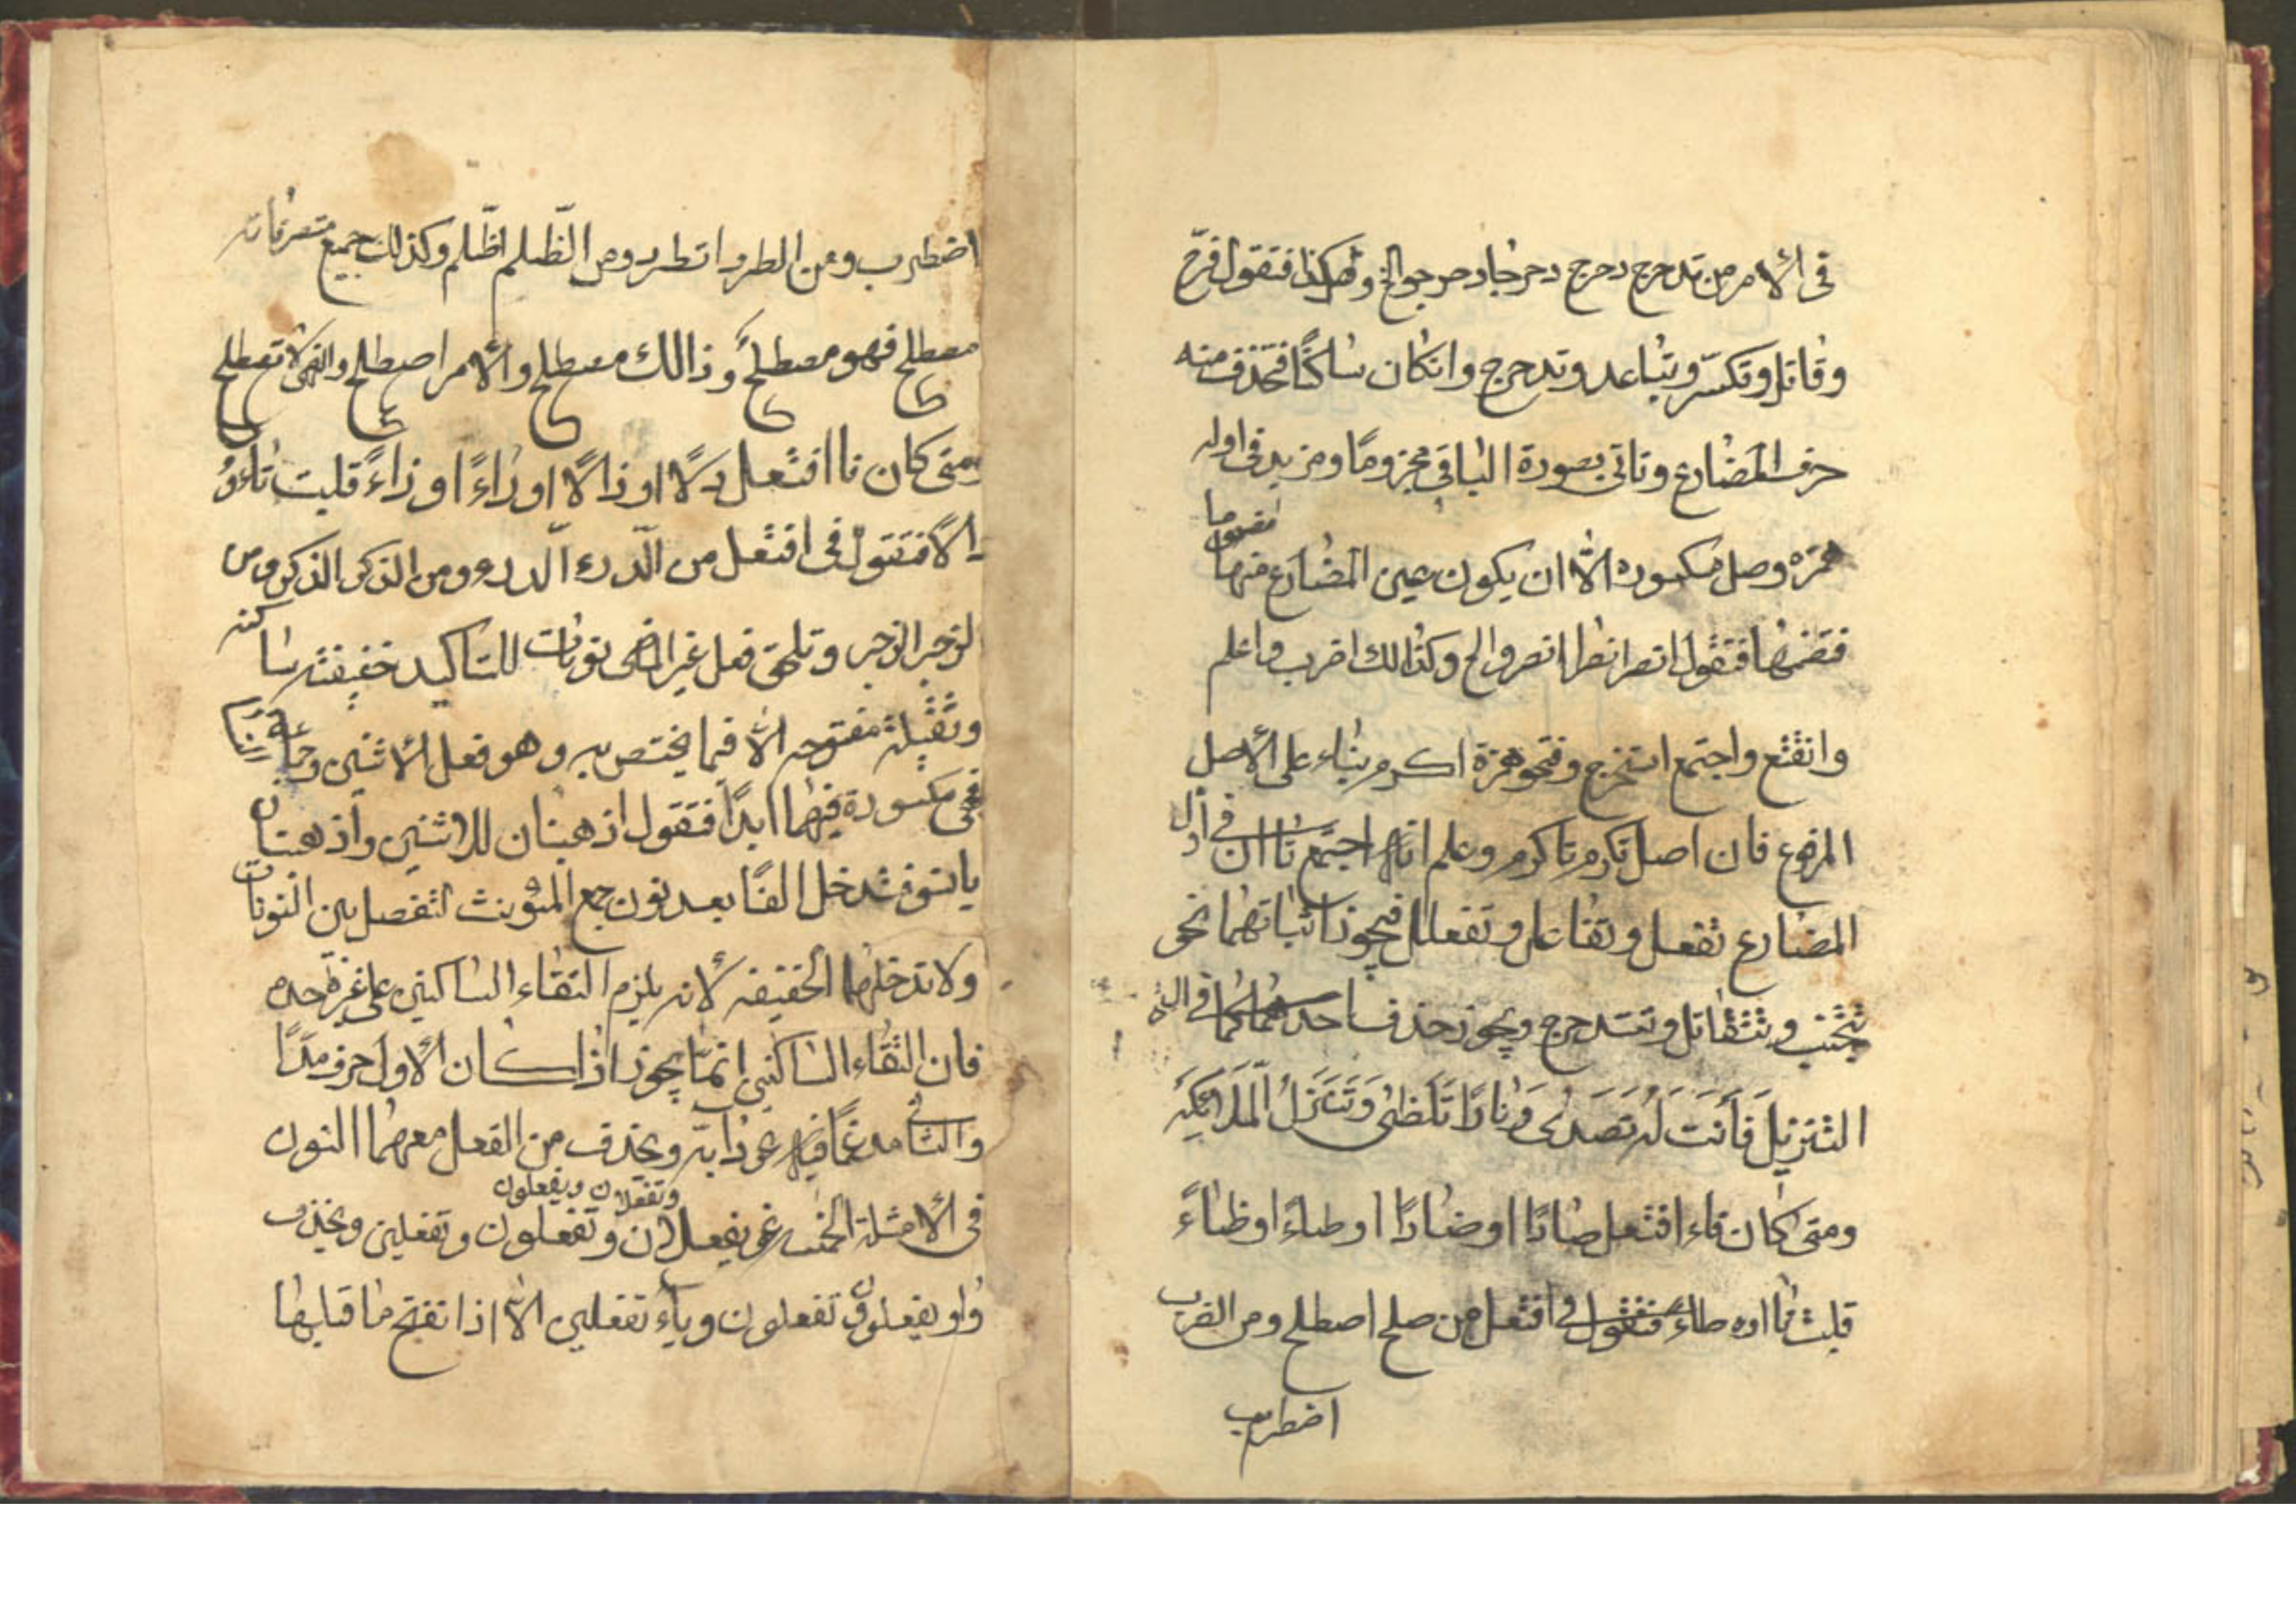 فى الأمر من تدحرج دحرج دحرجا دحرجوا الخ وهكذا فتقول فرّح
وقاتل وتكسّر وتباعد وتدحرج وانكان ساكنًا فتحذف منه
حرف المضارع وتاتى بصورة الباقى مجزومًا ومزيد فى اوله
همزه وصل مكسوره الّا ان يكون عين المضارع منها مضموما
فتضمها فتقول انصر انصرا انصروا الخ وكذالك اضرب واعلم
وانقطع واجتمع استخرج وفتحو همزة اكرم بناء على الأصل
المرفوع فان اصل تكرم تاكرم وعلم انه اجتمع تاان فى اول
المضارع تفعل وتفاعل وتفعلل فيجوز اثباتهما نحو
تتجنب وتتقاتل وتتدحرج ويجوز حذف احدهما كما فى
التنزيل فَأَنتَ لَهُ تَصَدّى وَنَارًا تَلَظّى وَتَنَزّلُ المَلَائكة
ومتى كان فاء افتعل صادًا او ضادًا او طاءً او ظاءً
قلبت تااوه طاءً فتقول فى افتعل من صلح اصطلح ومن الضرب
اضطرب
اضطرب ومن الطرد اتطرد ومن الظلم اظّلم وكذلك جميع متصرفاته
مصطلح فهو مصطلحً وذالك مصطلح والأمر اصطلح والنهى لا تصطلح
ومتى كان فا افتعل دالًا او ذالًا اوزاءً اوزاءً قلبت تاءوُ
دالًا فتقول فى افتعل من الدّرء الدّرء ومن الذكر الذكر ومن
الزجر الزجر وتلحق فعل غير الماضى نونات للتاكيد خفيفته ساكنه
وثقيلة مفتوحه الّا فيما يختص به وهو فعل الاثنين وجماعة
فهى مكسورة فيهما ابدًا فتقول اذهبنان للاثنين واذهبنان
يا نسوة فتدخل الفًا بعد نون جمع المؤنث لتفصل بين النونات
ولا تدخلهما الخفيفه لأنه يلزم التقاء الساكنين على غير حده
فان التقاء الساكنين انمّا يجوز اذا كان الأول حرف مدًا
والثانى مدغمًا فيه نحو دابه ويحذف من الفعل معهما النون
فى الأمثلة الخمسه نحو يفعلان وتفعلان ويفعلون وتفعلون وتفعلين ويحذف
واو يفعلون تفعلون وياء تفعلين الّا اذا نفتح ما قبلها